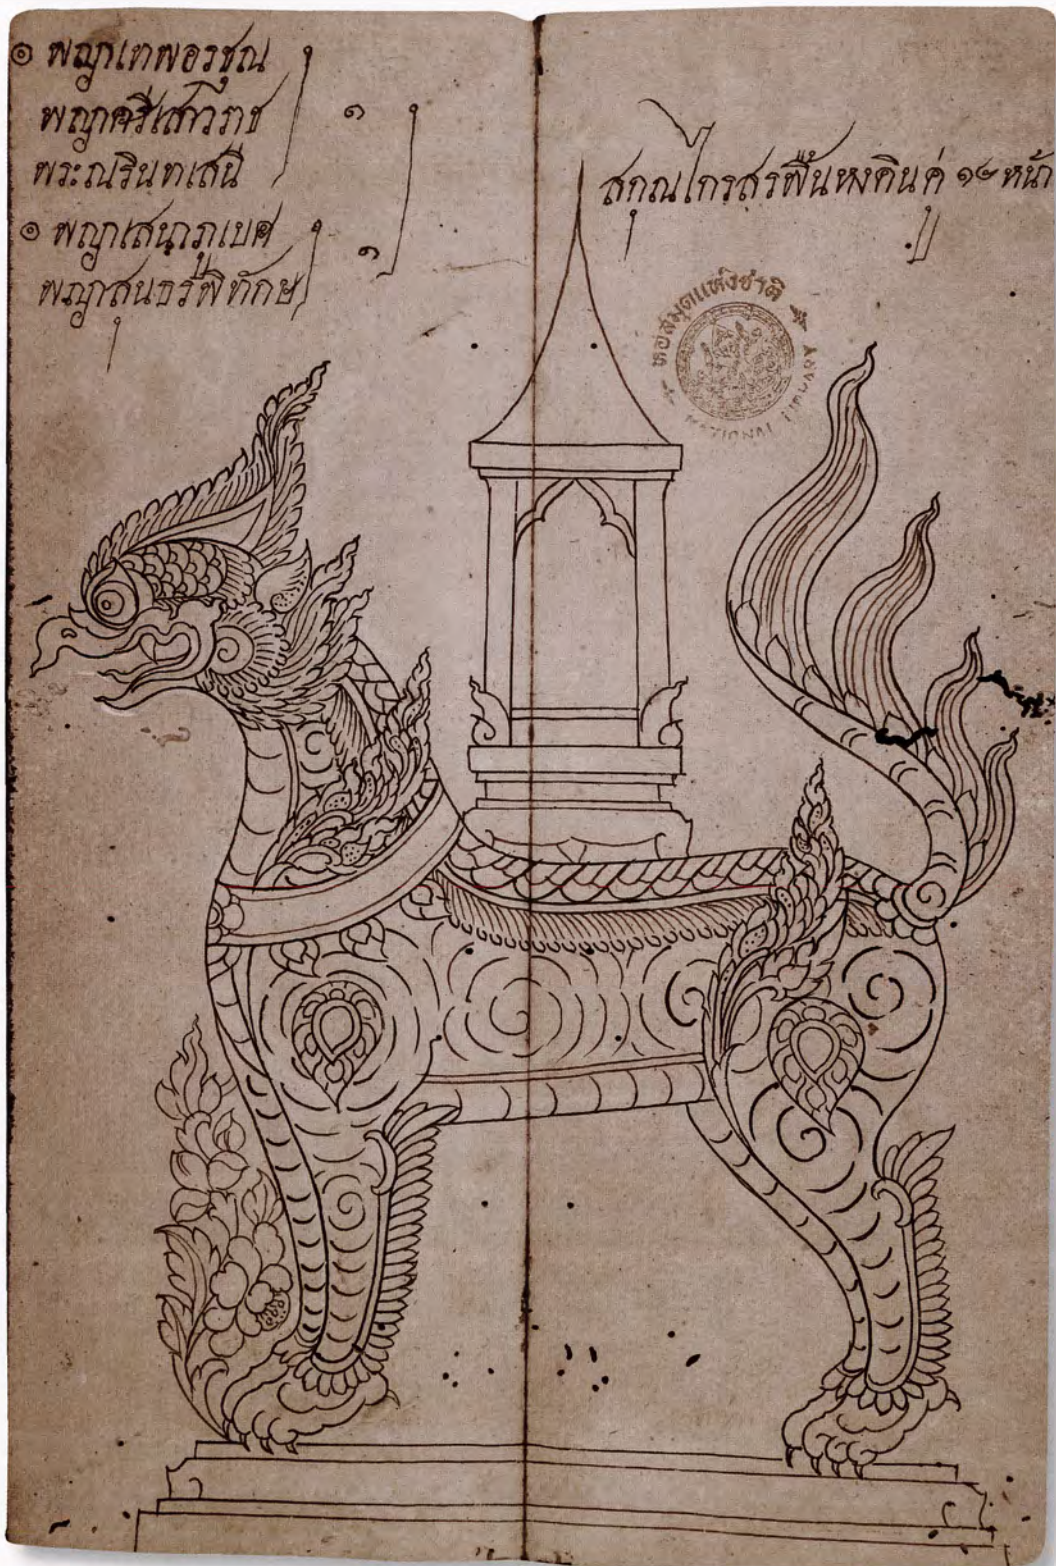 ๑ พญาเทพอรชุณ
พญาศรีเสาวราช
พระณรินทเสนี
๑
๑ พญาเสนาภูเบศ
พญาสุนธรพิทักษ
๑
สกุณไกรสรพื้นหงดินคู่ ๑๙ หน้า
หอสมุดแห่งชาติ
NATIONAL LIBRARY